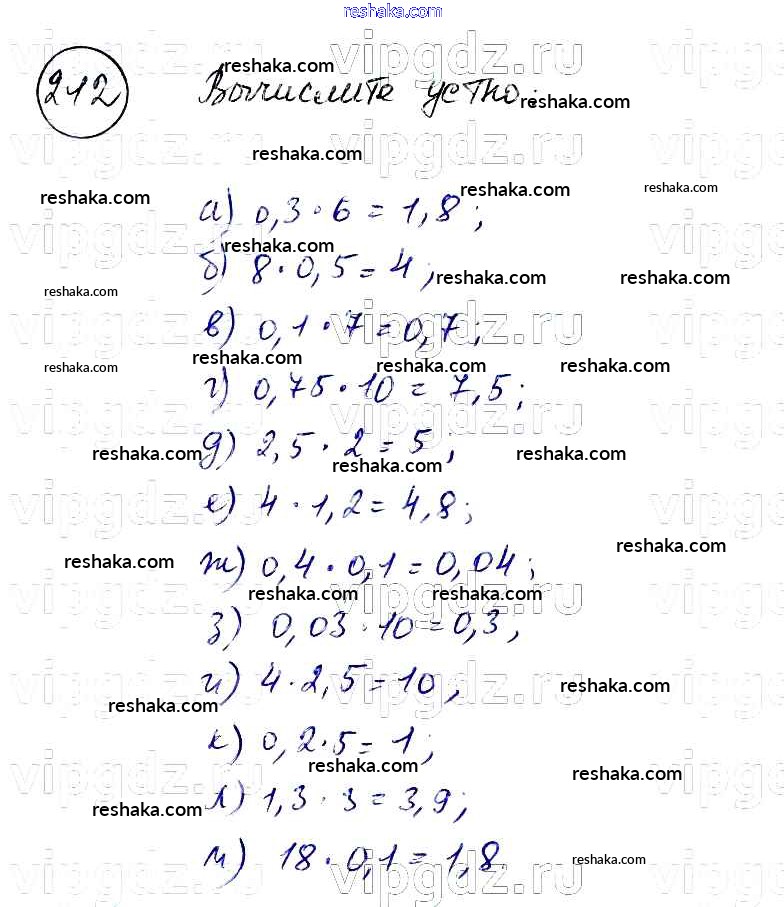 reshaka.com
212 Вычислите устно:
а) 0,3 · 6 = 1,8;
б) 8 · 0,5 = 4;
в) 0,1 · 7 = 0,7;
г) 0,75 · 10 = 7,5;
д) 2,5 · 2 = 5;
е) 4 · 1,2 = 4,8;
ж) 0,4 · 0,1 = 0,04;
з) 0,03 · 10 = 0,3;
и) 4 · 2,5 = 10;
к) 0,2 · 5 = 1;
л) 1,3 · 3 = 3,9;
м) 18 · 0,1 = 1,8